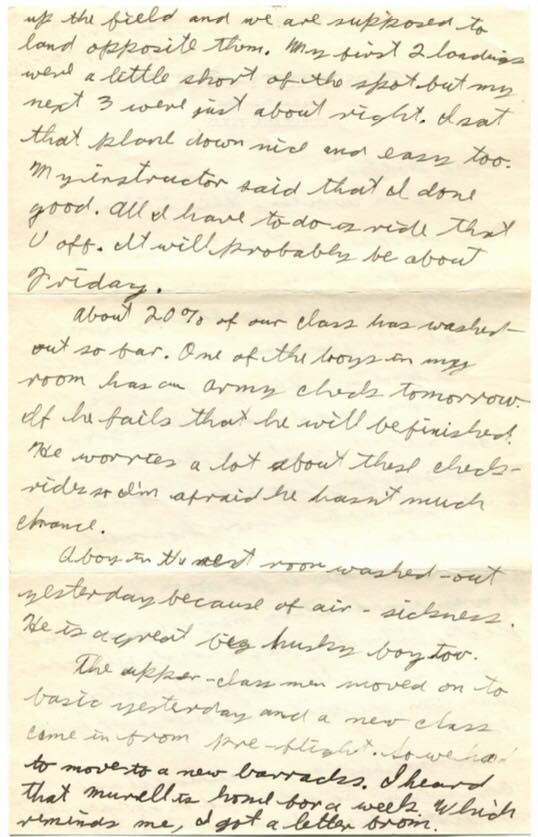 up the field and we are supposed to
land opposite them. My first 2 landings
were a little short of the spot but my
next 3 were just about right. I sat
that plane down nice and easy too.
My instructor said that I done
good. All I have to do is ride that
U off. It will probably be about
Friday.
About 20% of our class has washed-
out so far. One of the boys in my
room has an army check tomorrow.
If he fails that he will be finished.
He worries a lot about these check-
rides so I'm afraid he hasn't much
chance.
A boy in the next room washed-out
yesterday because of air-sickness.
He is a great big husky boy too.
The upper-class men moved on to
basic yesterday and a new class
come in from pre-flight. So we had
to move to a new barracks. I heard
that Murell is home for a week. Which
reminds me, I got a letter from.